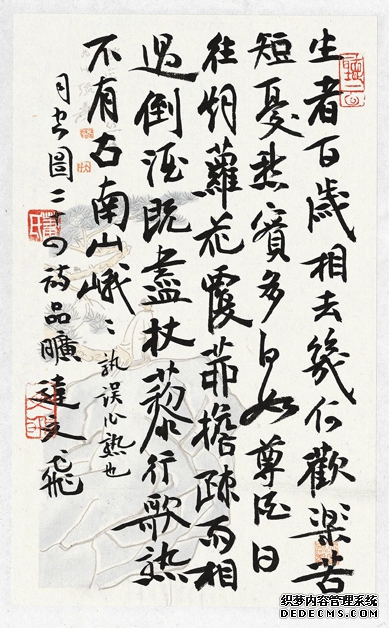 生者百歲相去幾何歡樂苦
短憂愁實多何如尊酒日
往烟蘿花覆茆檐疎雨相
過倒酒既盡杖藜行歌熟
不有古南山峨〻
孰误熟也
司空圖二十四詩品曠達文飛
织梦内容管理系统
DEDECMS.COM